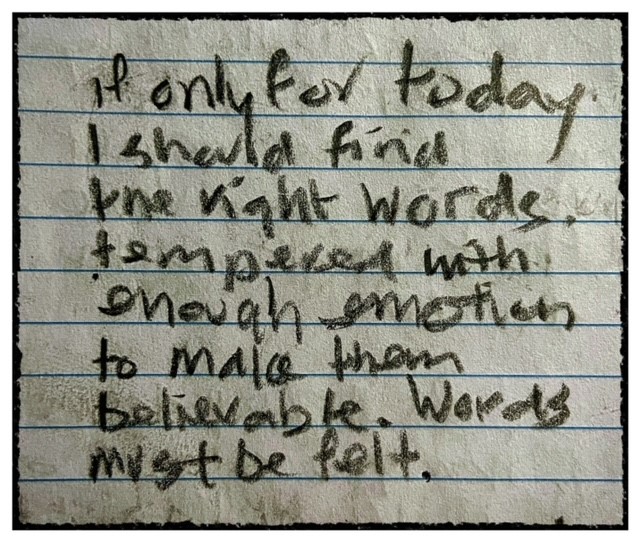 if only for today.
I should find
the right words.
tempered with
enough emotion
to make them
believable. Words
must be felt.